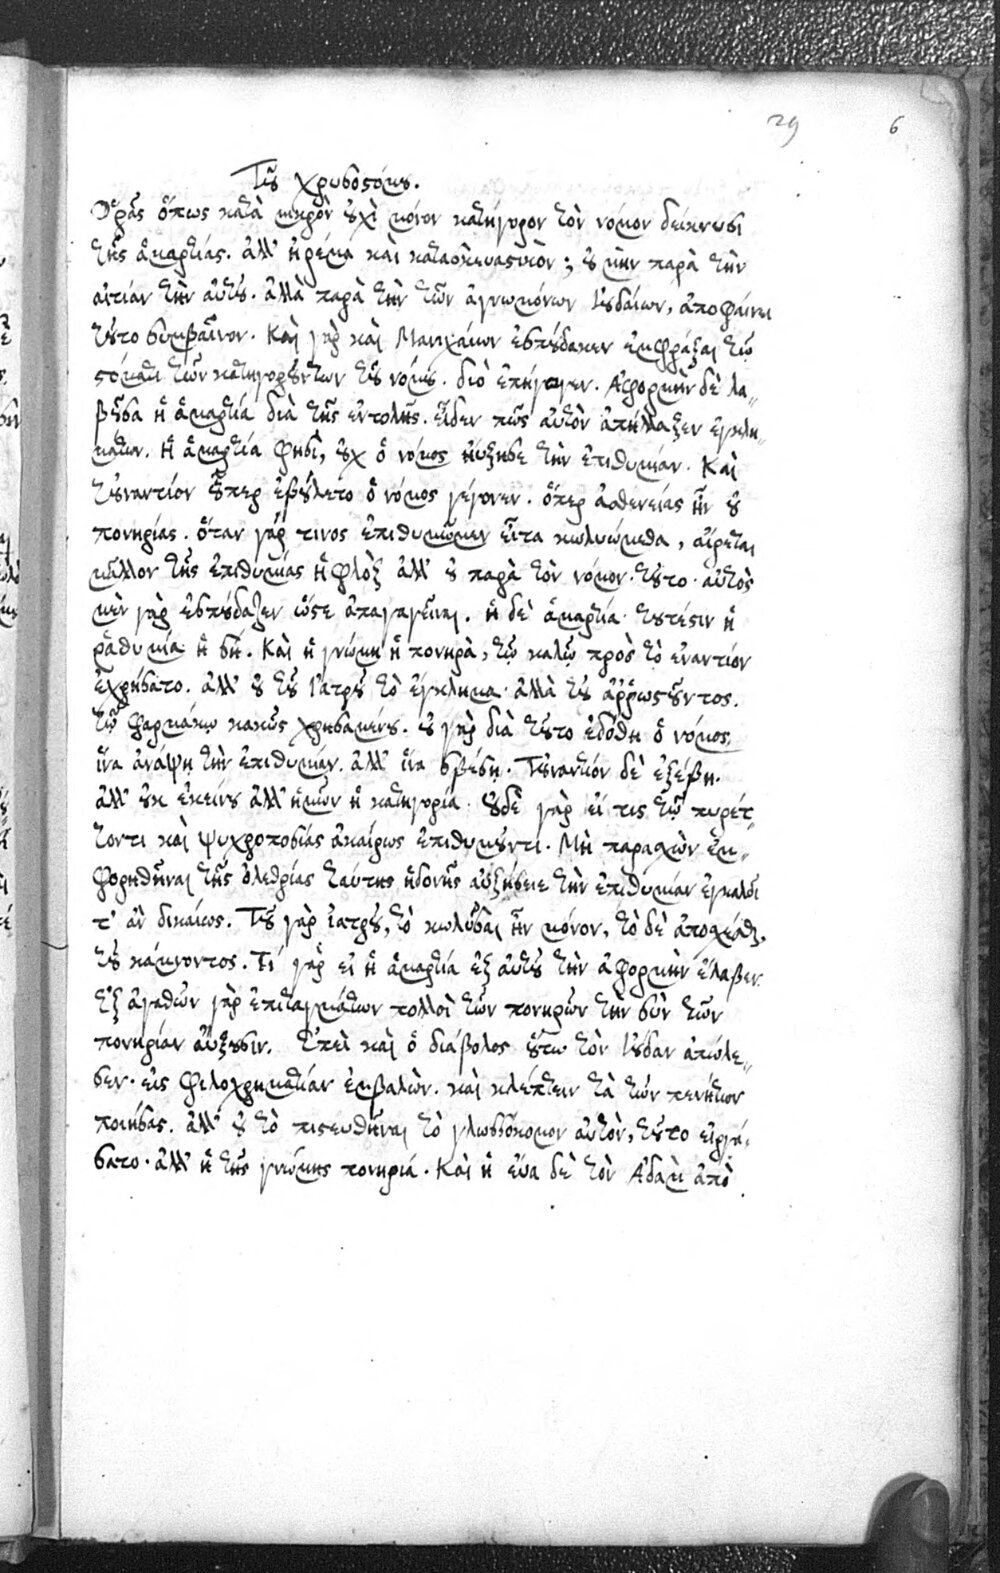 29 6
Τοῦ χρυσοστόμου.
Ὁρᾷς ὅπως κατὰ μικρὸν οὐχὶ μόνον κατήγορον τὸν νόμον δείκνυσι
τῆς ἁμαρτίας. ἀλλ' ἠρέμα καὶ κατασκευαστικὸν; οὐ μὴν παρὰ τὴν
αἰτίαν τὴν αὐτοῦ. ἀλλὰ παρὰ τὴν τῶν ἀγνωμόνων Ἰουδαίων, ἀποφαίνει
τοῦτο συμβαῖνον. Καὶ γὰρ καὶ Μανιχαίων ἐσπούδακεν ἐμφράξαι τῷ
στόματι τῶν κατηγορούντων τοῦ νόμου. διὸ ἐπήγαγεν. Ἀφορμὴν δὲ λα„
βοῦσα ἡ ἁμαρτία διὰ τῆς ἐντολῆς. εἶδεν πῶς αὐτὸν ἀπήλλαξεν ἐγκλη„
μάτων. ἡ ἁμαρτία φησὶ, οὐχ ὁ νόμος ηὔξησε τὴν ἐπιθυμίαν. Καὶ
τοὐναντίον οὗπερ ἐβούλετο ὁ νόμος γέγονεν. ὅπερ ἀσθενείας ἦν οὐ
πονηρίας. ὅταν γάρ τινος ἐπιθυμῶμεν εἶτα κωλυώμεθα, αἴρεται
μᾶλλον τῆς ἐπιθυμίας ἡ φλὸξ ἀλλ' οὐ παρὰ τὸν νόμον τοῦτο· αὐτὸς
μὲν γὰρ ἐσπούδαζεν ὥστε ἀπαγαγεῖναι. ἡ δὲ ἁμαρτία· τουτέστιν ἡ
ῥαθυμία ἡ σή. Καὶ ἡ γνώμη ἡ πονηρὰ, τῷ καλῷ πρὸς τὸ ἐναντίον
ἐχρήσατο. ἀλλ' οὐ τοῦ ἰατροῦ τὸ ἔγκλημα· ἀλλὰ τοῦ ἀῤῥωστοῦντος.
τῷ φαρμάκῳ κακῶς χρησαμένου. οὐ γὰρ διὰ τοῦτο ἐδόθη ὁ νόμος,
ἵνα ἀνάψῃ τὴν ἐπιθυμίαν. ἀλλ' ἵνα σβέσῃ. Τοὐναντίον δὲ ἐξέβη.
ἀλλ' οὐκ ἐκείνου ἀλλ' ἡμῶν ἡ κατηγορία. οὐδὲ γὰρ εἴ τις τῷ πυρέτ„
τοντι καὶ ψυχροποσίας ἀκαίρως ἐπιθυμοῦντι. Μὴ παρασχὼν ἐμ„
φορηθῆναι τῆς ὀλεθρίας ταύτης ἡδονῆς αὐξήσειε τὴν ἐπιθυμίαν ἐγκαλοῖ
τ' ἂν δικαίως. Τοῦ γὰρ ἰατροῦ, τὸ κωλῦσαι ἦν μόνον, τὸ δὲ ἀποσχέσθαι,
τοῦ κάμνοντος. Τί γὰρ εἰ ἡ ἁμαρτία ἐξ αὐτοῦ τὴν ἀφορμὴν ἔλαβεν.
Ἐξ ἀγαθῶν γὰρ ἐπιταγμάτων πολλοὶ τῶν πονηρῶν τὴν σὺν τῶν
πονηρίαν αὔξουσιν. Ἐπεὶ καὶ ὁ διάβολος οὕτω τὸν Ἰούδαν ἀπώλε„
σεν· εἰς φιλοχρηματίαν ἐμβαλὼν. καὶ κλέπτειν τὰ τῶν πενήτων
ποιήσας. ἀλλ' οὐ τὸ πιστευθῆναι τὸ γλωσσόκομον αὐτὸν, τοῦτο εἰργά„
σατο· ἀλλ' ἡ τῆς γνώμης πονηριά. Καὶ ἡ εὕα δὲ τὸν Ἀδὰμ ἀπὸ